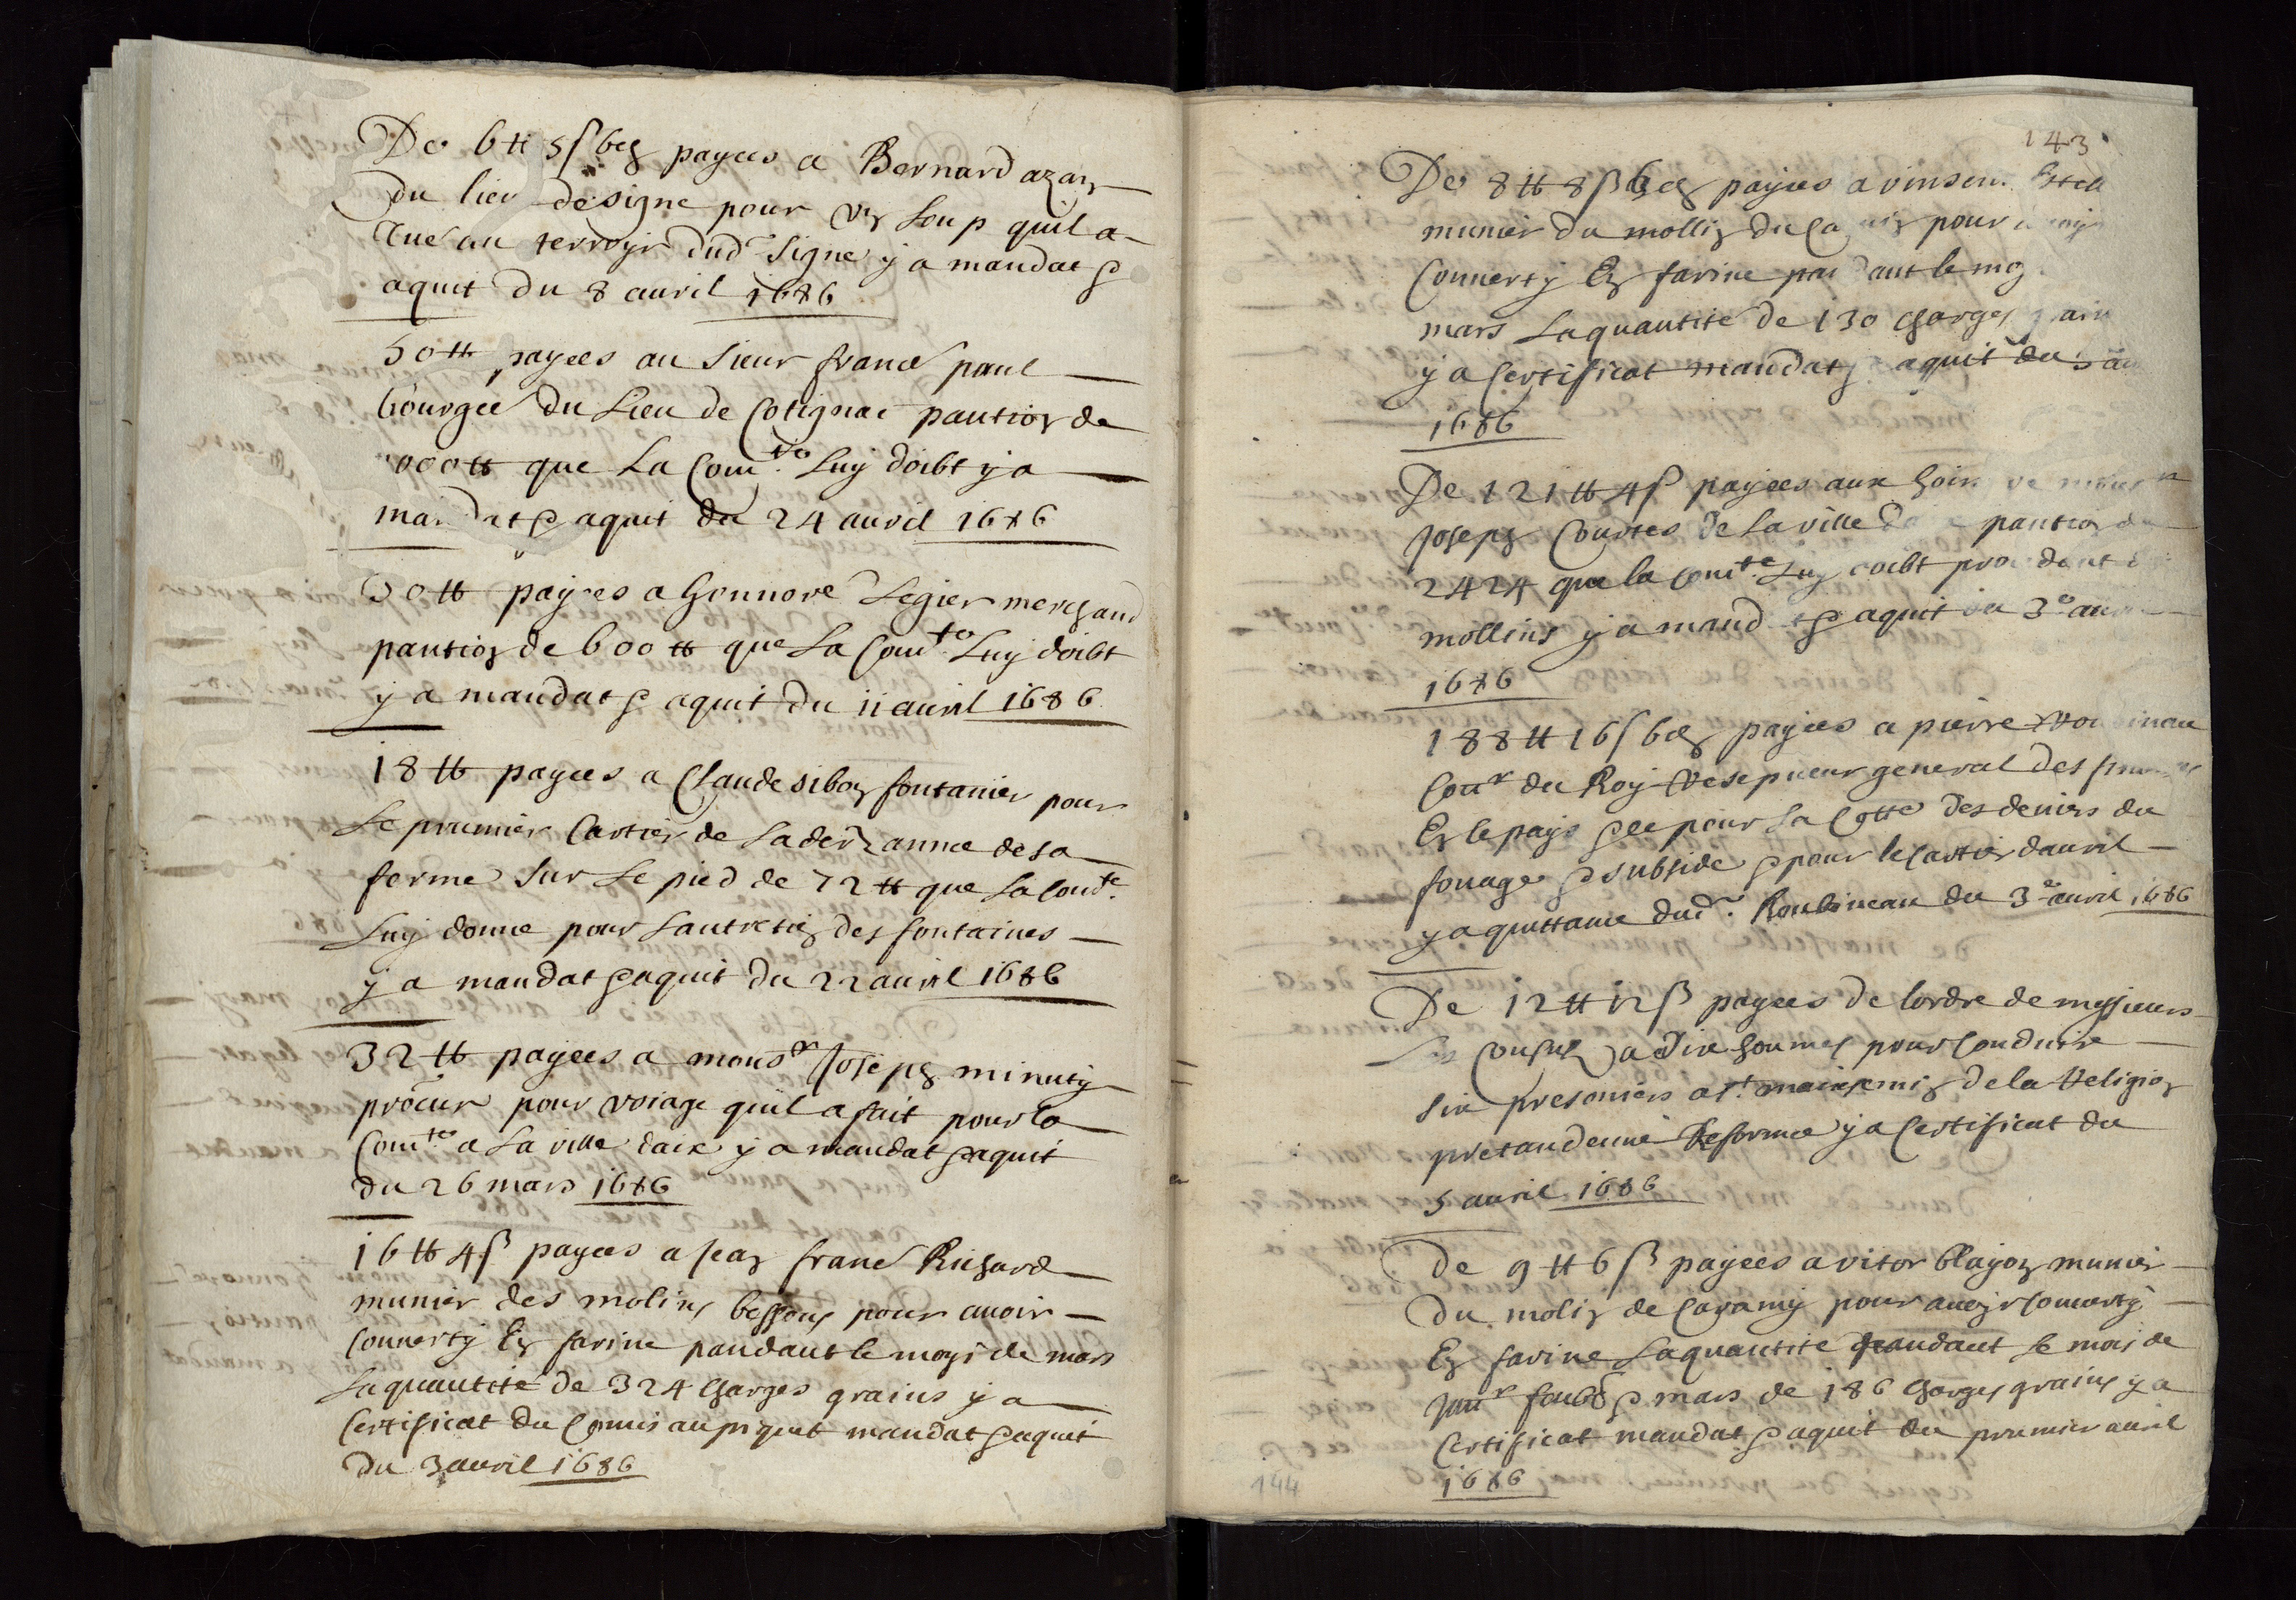 De 6 tt 5 s 6 d payees a Bernard azan
Du lieu de signe pour un Loup quil a
tué au terroyr dud signe y a mandat &
aquit du 8 auril 1686
50 tt payees au sieur franc paul
bourgeé du Lieu de Cotignac pantion de
000 tt que La Com.te Luy doibt y a
mandat & aquit du 24 auril 1686
30 tt payees a honnoré Legier merchand
pantion de 600 tt que La Com.te Luy doibt
y a mandat & aquit du 11 auril 1686
18 tt payees a Claude sibon fontanier pour
Le prumier Cartier de La der annee de sa
ferme sur Le pied de 72 tt que La Com.te
Luy donne pour Lantretien des fontaines
y a mandat & aquit du 22 auril 1686
32 tt payees a monsr Joseph minuty
procur pour voiage quil a fait pour la
Com.te a La ville daix y a mandat & aquit
du 26 mars 1686
16 tt 4 s payees a Jean franc Richard
munier des molins bessons pour auoir
Conuerty En farine pandant le moys de mars
La quantité de 324 charges grains y a
Certificat du Comis au piquet mandat & aquit
Du 3 auril 1686
143
De 8 tt 8 s 6 d payees a vinsen
munier du mollin du pour
Conuerty En farine pandant le
mars La quantité de 130 charges grain
y a Certificat mandat & aquit du 5
1686
De 121 tt 4 s payees aux hoirs de
Joseph Courtes de La ville pantion de
2424 que la com.te Luy doibt
mollins y a mandat & aquit du 3e auril
1686
188 tt 16 s 6 d payees a pierre
Con.r du Roy Resepueur general des
En le pays pour La Cotte des deniers du
fouage & subside & pour le Cartier dauril
y a quittance dud. Roubineau du 3e auril 1686
De 12 tt 12 s payees de lordre de messieurs
Les Consulz a dix hommes pour Conduire
six presoniers a s.t maixemin de la Religion
pretandeüe Reformee y a Certificat du
5 auril 1686
De 9 tt 6 s payees a vitor blayon munier
Du molin de Caramy pour auoyr Conuerty
En farine La quantité pandant Le mois de
Janr feubr & mars de 186 charges grains y a
Certificat mandat & aquit du prumier auril
1686
144